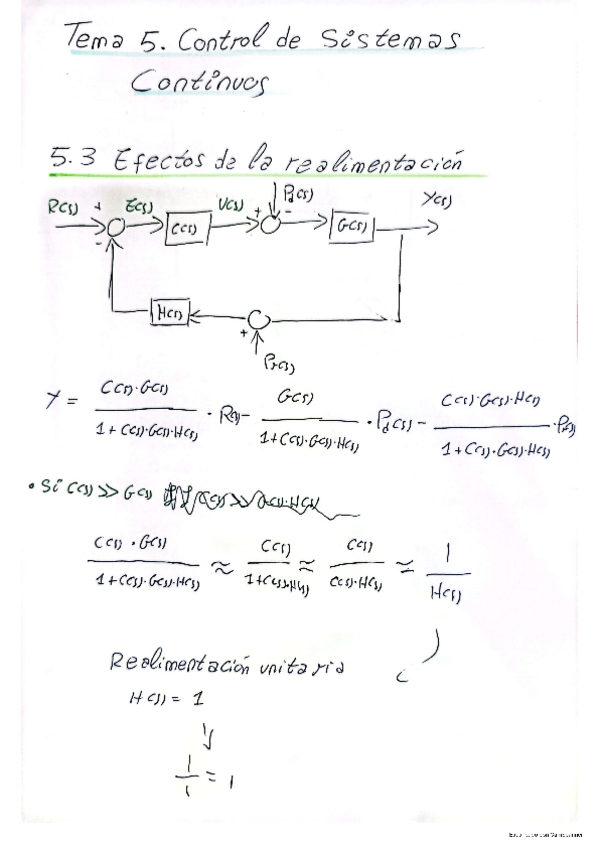 Tema 5. Control de Sistemas
Continuos
5.3 Efectos de la realimentación
R(s) + E(s) C(s) U(s) + Pd(s) - G(s) Y(s)
-
H(s)
+
Pr(s)
Y = C(s)·G(s) / 1+C(s)·G(s)·H(s) · R(s) - G(s) / 1+C(s)·G(s)·H(s) · Pd(s) - C(s)·G(s)·H(s) / 1+C(s)·G(s)·H(s) · Pr(s)
• Si C(s) >> G(s)
C(s)·G(s) / 1+C(s)·G(s)·H(s) ≈ C(s) / 1+C(s)·H(s) ≈ C(s) / C(s)·H(s) ≈ 1 / H(s)
Realimentación unitaria
H(s) = 1
1 / 1 = 1